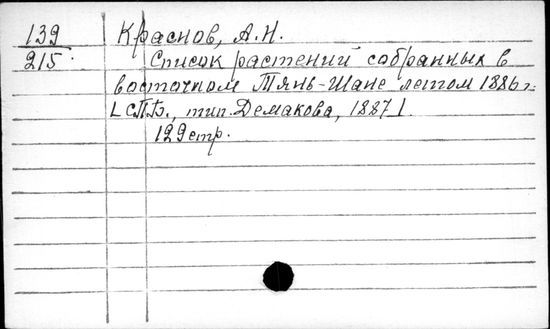 139 Краснов, А.Н.
215 Список растений собранных в
восточном Тянь-Шане летом 1886 г.
[СПБ., тип. Демакова, 1887].
129 стр.